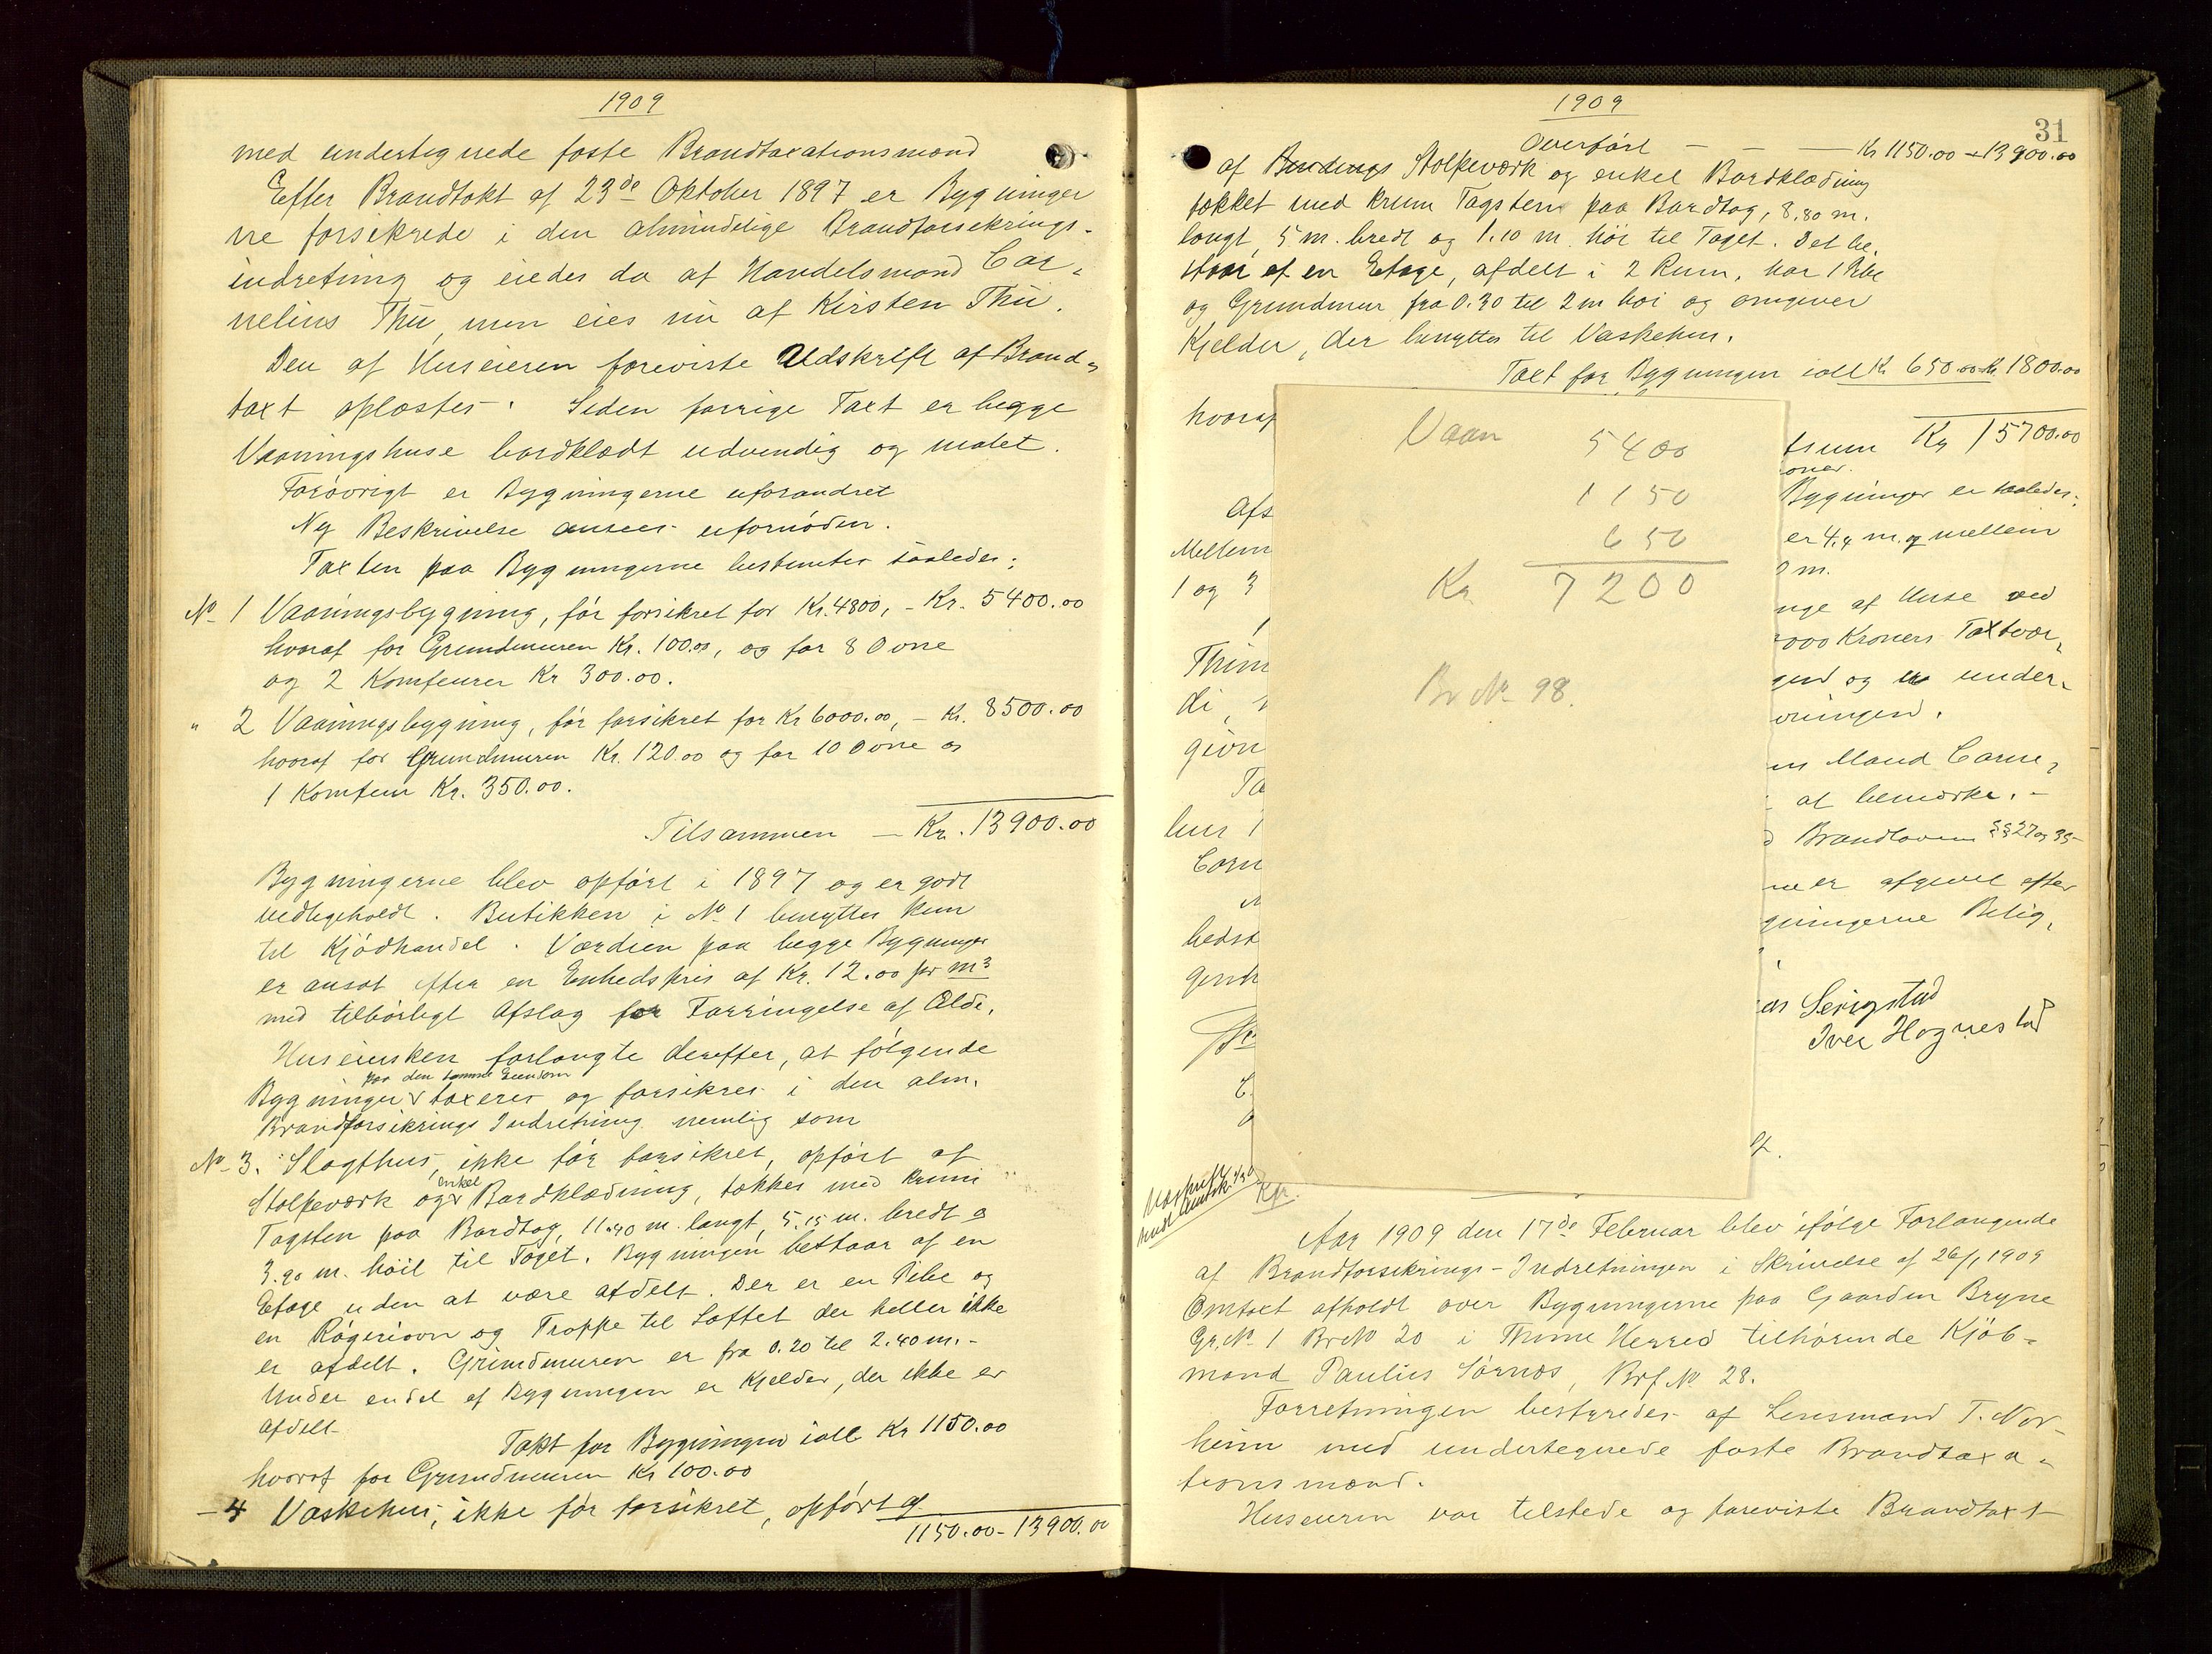 1909
med undertegnede faste Brandtaxationsmænd
Efter Brandtakt af 23de Oktober 1897 er Bygninger
ne forsikrede i den almindelige Brandforsikrings-
indretning og eiedes da af Handelsmand Cor-
nelius Thu, men eies nu af Kirsten Thu.
Den af Huseieren foreviste Udskrift af Brand-
taxt oplæstes. Siden forrige Taxt er begge
Vaaningshuse bordklædt udvendig og malet.
Forøvrigt er Bygningerne uforandret
Ny Beskrivelse ansees ufornöden.
Taxten paa Bygningerne bestemtes saaledes:
No 1 Vaaningsbygning, før forsikret for Kr. 4800, - Kr. 5400.00
hvoraf for Grundmuren Kr. 100.00, og for 8 Ovne
og 2 Komfeurer Kr 300.00.
" 2 Vaaningsbygning, før forsikret for Kr 6000.00, - Kr. 8500.00
hvoraf for Grundmuren Kr. 120.00 og for 10 Ovne og
1 Komfeur Kr. 350.00.
Tilsammen - Kr. 13900.00
Bygningerne blev opført i 1897 og er godt
vedligeholdt. Butikken i No 1 benyttes kun
til Kjödhandel. Værdien paa begge Bygninger
er ansat efter en Enhedspris af Kr. 12.00 pr m3
med tilbørligt Afslag for Forringelse af Ælde.
Huseiersken forlangte derefter, at følgende
paa den samme Eiendom
Bygninger taxeres og forsikres i den alm.
Brandforsikrings Indretning nemlig som
No 3. Slagthus, ikke før forsikret, opført af
enkel
Stolpeværk og Bordklædning, tækket med krum
Tagsten paa Bordtag, 11.40 m. langt, 5.15 m. bredt og
3.90 m. höit til Taget. Bygningen bestaar af en
Etage uden at være afdelt. Der er en Pibe og
en Røgeriovn og Trappe til Loftet der heller ikke
er afdelt. Grundmuren er fra 0.20 til 2.40 m.-
Under endel af Bygningen er Kjelder, der ikke er
afdelt
Takt for Bygningen ialt Kr 1150.00
hvoraf for Grundmuren Kr 100.00
- 4 Vaskehus, ikke før forsikret, opført af
1150.00 - 13900.00
1909
31
Overført - - - Kr 1150.00 + 13900.00
af Bindings Stolpeværk og enkel Bordklædning
tækket med krum Tagsten paa Bordtag, 8.80 m.
langt, 5 m. bredt og 1.10 m. höi til Taget. Det be-
staar af en Etage, afdelt i 2 Rum, har 1 Pibe
og Grundmur fra 0.30 til 2 m höi og omgiver
Kjelder, der benyttes til Vaskehus.
Taxt for Bygningen ialt Kr 650.00 Kr. 1800.00
hvoraf
tsum Kr 15700.00
oner.
Bygninger er saaledes:
Afs
er 4,4 m. og mellem
Mellem
m.
1 og 3
nge af Huse ved
000 Kroners Taxtvær-
Thim
gen og under-
di,
vningen.
givn
en Mand Corne-
Ta
at bemærke. -
hus 1
Brandloven §§ 27 og 35
Corn
ne er afgivet efter
gningerne Belig-
bedst
gend
as Serigstad
Iver Hognestad
Vaan
5400
1150
650
Kr 7200
Br No 98.
Aar 1909 den 17de Februar blev ifølge Forlangende
af Brandforsikrings-Indretningen i Skrivelse af 26/1 1909
Omtaxt afholdt over Bygningerne paa Gaarden Bryne
Gr. No 1 Br No 20 i Thime Herred tilhørende Kjöb-
mand Paulius Sørnæs, Brf. No 28.
Forretningen bestyredes af Lensmand T. Nor-
heim med undertegnede faste Brandtaxa-
tionsmænd.
Huseieren var tilstede og foreviste Brandtaxt